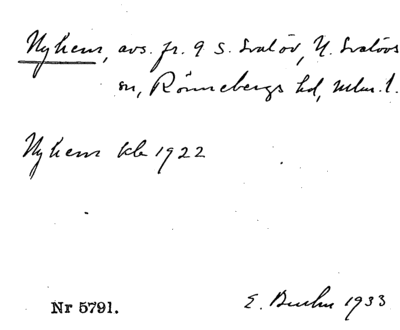 Nyhem, avs. fr. 9 S. Svalöv, N. Svalövs
sn, Rönnebergs hd, Mlm. l.
Nyhem kb 1922
Nr 5791.
E. 1933